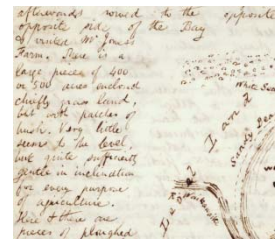 afterwards rowed to the opposite
opposite side of the Bay
& visited Mr Jones
Farm. There is a
large piece of 400
or 500 acres inclosed
chiefly grass land,
but with patches of
bush. Very little
seems to be level,
but quite sufficiently
gentle in inclination
for every purpose
of agriculture.
Here & there are
pieces of ploughed
White Sand
Sandy Beach
land